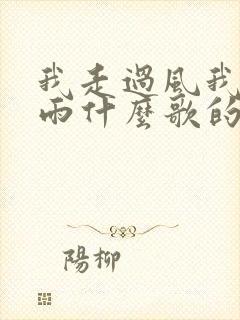 我走過風我
雨什麼歌的
陽柳